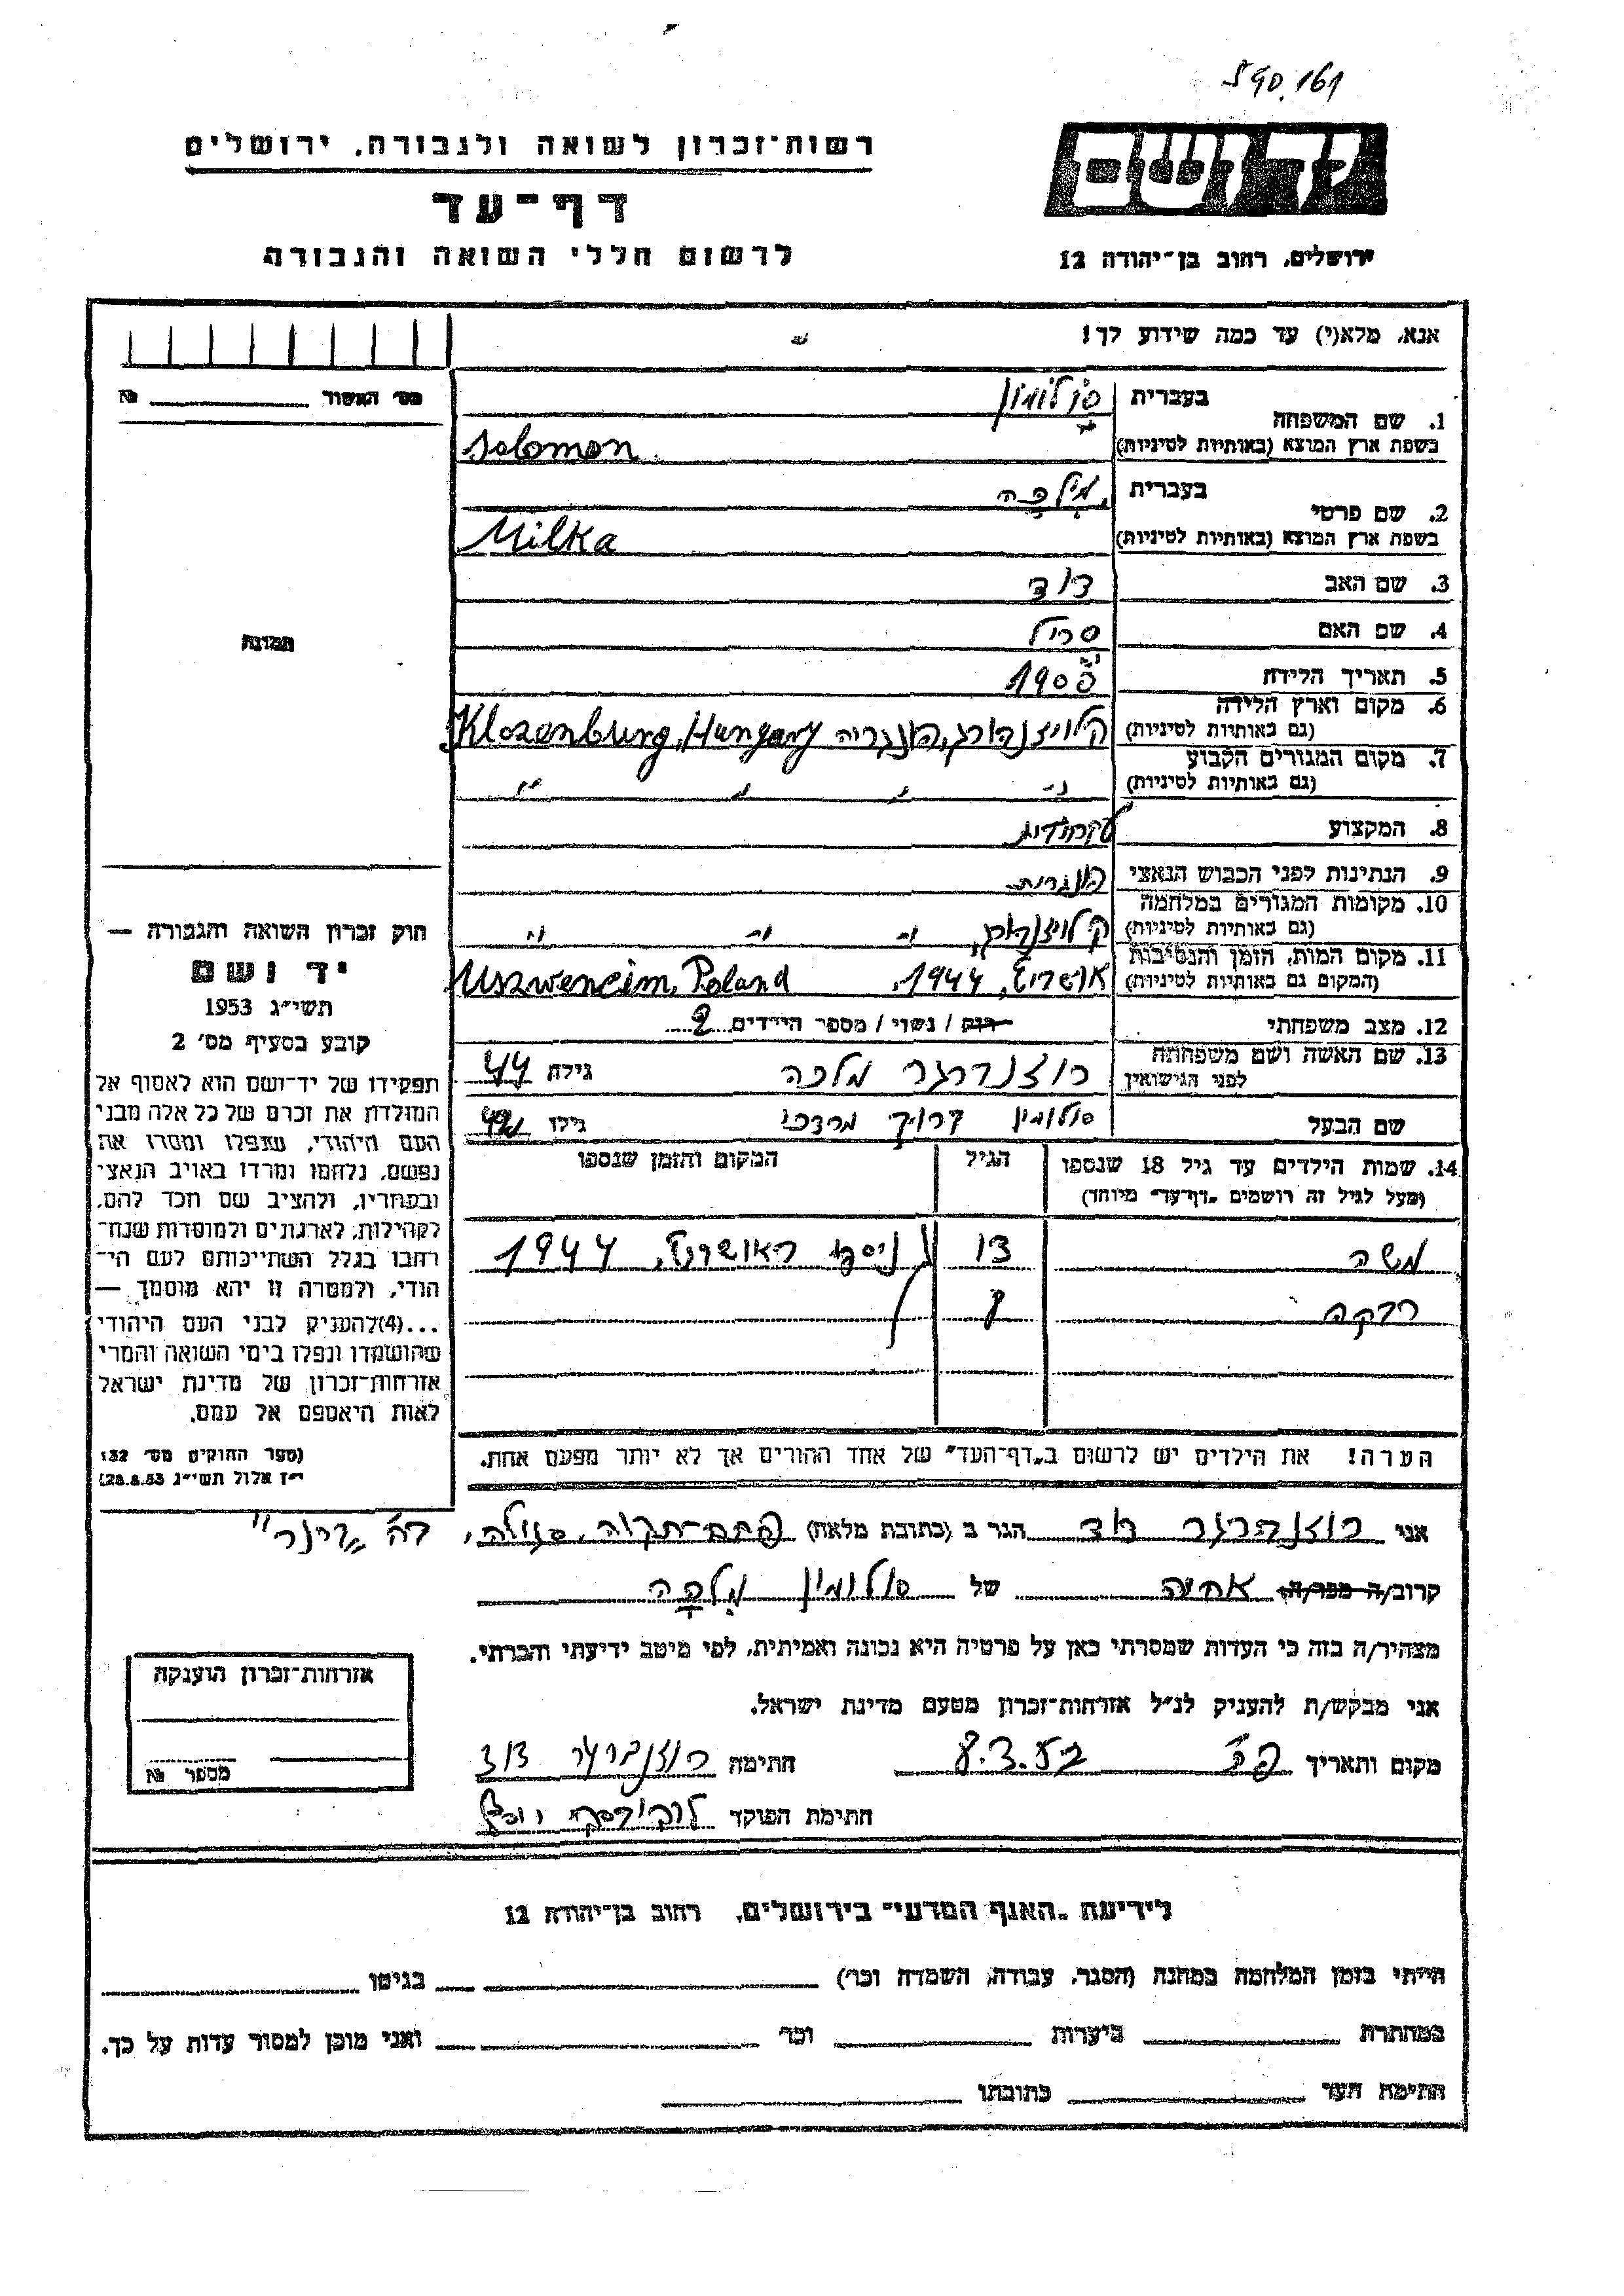 590.161
רשות־זכרון לשואה ולגבורה, ירושלים
יד ושם
דף־עד
לרשום חללי השואה והגבורה
ירושלים, רחוב בן־יהודה 12
אנא, מלא(י) עד כמה שידוע לך!
מס׳ האשור № 
1. שם המשפחה בעברית סולומון
בשפת ארץ המוצא (באותיות לטיניות) Solomon
2. שם פרטי בעברית מילכה
בשפת ארץ המוצא (באותיות לטיניות) Milka
3. שם האב דוד
4. שם האם
תמונה
5. תאריך הלידה 1900
6. מקום וארץ הלידה
(גם באותיות לטיניות) קלויזנבורג, הונגריה Klozenburg, Hungary
7. מקום המגורים הקבוע
(גם באותיות לטיניות) " " " "
8. המקצוע
9. הנתינות לפני הכבוש הנאצי הונגרית
10. מקומות המגורים במלחמה
(גם באותיות לטיניות) קלויזנבורג, " " "
11. מקום המות, הזמן והנסיבות
(המקום גם באותיות לטיניות) אושויץ, 1944, Uszwencim, Poland
12. מצב משפחתי רוק / נשוי / מספר הילדים 2
13. שם האשה ושם משפחתה
לפני הנישואין רוזנברגר מלכה גילה 44
שם הבעל סולומון מרדכי גילו
14. שמות הילדים עד גיל 18 שנספו הגיל המקום והזמן שנספו
(מעל לגיל זה רושמים „דף־עד״ מיוחד)
משה 13 ניספו באושויץ, 1944
רבקה 8
הערה! את הילדים יש לרשום ב„דף־העד״ של אחד ההורים אך לא יותר מפעם אחת.
חוק זכרון השואה והגבורה —
יד ושם
תשי״ג 1953
קובע בסעיף מס׳ 2
תפקידו של יד־ושם הוא לאסוף אל
המולדת את זכרם של כל אלה מבני
העם היהודי, שנפלו ומסרו את
נפשם, נלחמו ומרדו באויב הנאצי
ובעוזריו, ולהציב שם וזכר להם,
לקהילות, לארגונים ולמוסדות שנח־
רבו בגלל השתייכותם לעם הי־
הודי, ולמטרה זו יהא מוסמך —
...(4)להעניק לבני העם היהודי
שהושמדו ונפלו בימי השואה והמרי
אזרחות־זכרון של מדינת ישראל
לאות היאספם אל עמם.
(ספר החוקים מס׳ 132
י״ז אלול תשי״ג 28.8.53)
אני רוזנברגר דוד הגר ב (כתובת מלאה) פתח־תקוה, סגולה,
קרוב/ה מכר/ה אחיה של סולומון מלכה
מצהיר/ה בזה כי העדות שמסרתי כאן על פרטיה היא נכונה ואמיתית, לפי מיטב ידיעתי והכרתי.
אני מבקש/ת להעניק לנ״ל אזרחות־זכרון מטעם מדינת ישראל.
מקום ותאריך חתימה רוזנברגר דוד
חתימת הפוקד
אזרחות־זכרון הוענקה
מספר №
לידיעת „האגף המדעי״ בירושלים, רחוב בן־יהודה 12
הייתי בזמן המלחמה במחנה (הסגר, עבודה, השמדה וכו׳) בגיטו
במחתרת ביערות וכו׳ ואני מוכן למסור עדות על כך.
חתימת העד כתובתו